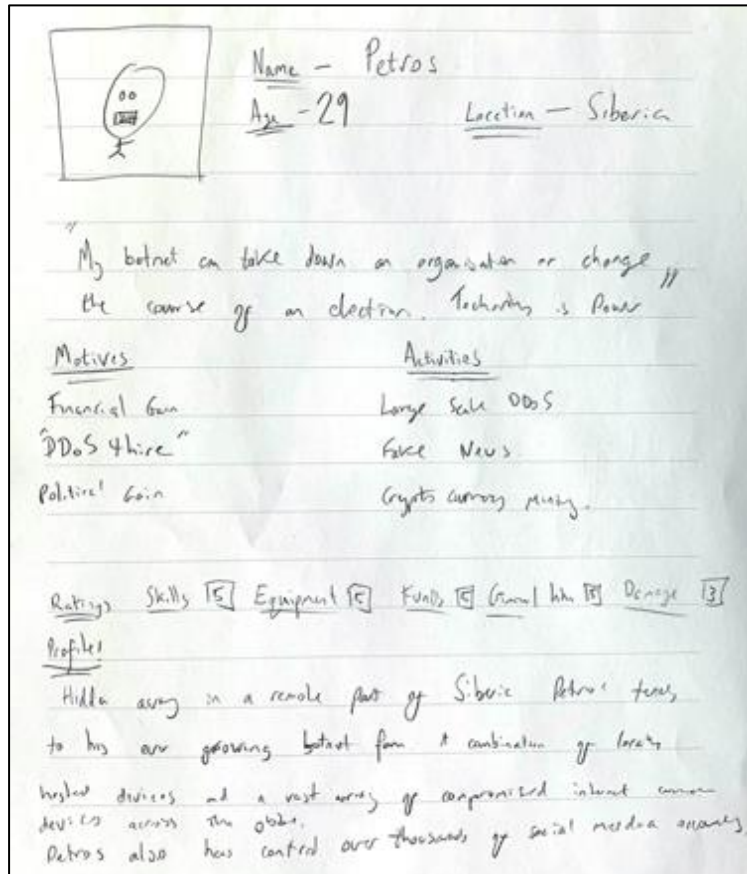 Name - Petros
Age - 29 Location - Siberia
"My botnet can take down an organisation or change
the course of an election. Technology is Power"
Motives Activities
Financial Gain Large Scale DDoS
"DDoS 4hire" Fake News
Political Gain Crypto currency mining.
Ratings Skills 5 Equipment 5 Funds 5 Damage 3
Profile:
Hidden away in a remote part of Siberia Petros
to his ever growing botnet farm A combination of locally
hosted devices and a vast array of compromised internet
devices across the globe.
Petros also has control over thousands of social media accounts,